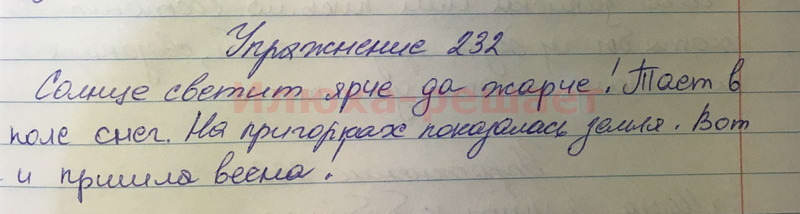 Упражнение 232
Солнце светит ярче да жарче! Тает в
Илюха-решает
поле снег. На пригорках показалась земля. Вот
и пришла весна!